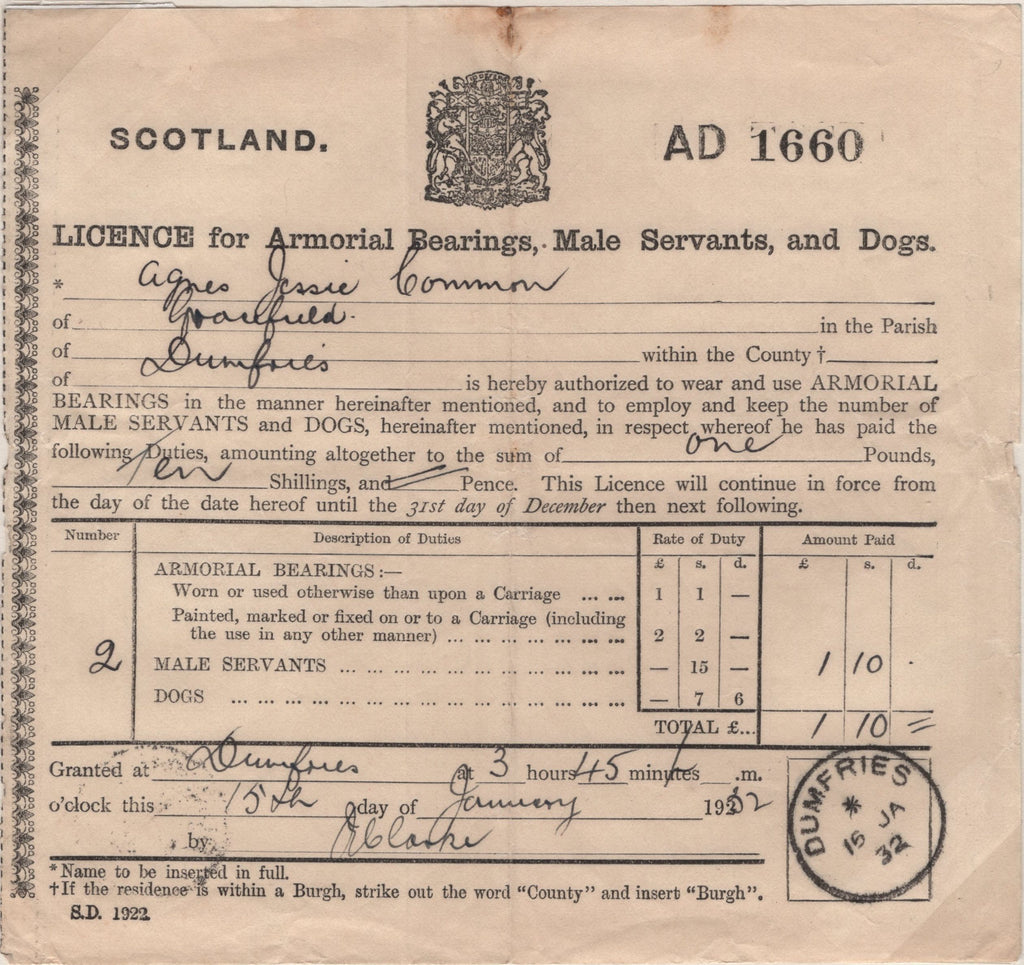 SCOTLAND.
AD 1660
LICENCE for Armorial Bearings, Male Servants, and Dogs.
* Agnes Jessie Common
of in the Parish
of Dumfries within the County †
of is hereby authorized to wear and use ARMORIAL
BEARINGS in the manner hereinafter mentioned, and to employ and keep the number of
MALE SERVANTS and DOGS, hereinafter mentioned, in respect whereof he has paid the
following Duties, amounting altogether to the sum of one Pounds,
Ten Shillings, and = Pence. This Licence will continue in force from
the day of the date hereof until the 31st day of December then next following.
Number Description of Duties Rate of Duty Amount Paid
£ s. d. £ s. d.
ARMORIAL BEARINGS:—
Worn or used otherwise than upon a Carriage ... ... 1 1 —
Painted, marked or fixed on or to a Carriage (including
the use in any other manner) ... ... ... ... ... ... 2 2 —
2 MALE SERVANTS ... ... ... ... ... ... ... ... ... — 15 — 1 10 .
DOGS ... ... ... ... ... ... ... ... ... ... ... ... ... — 7 6
TOTAL £... 1 10 =
Granted at Dumfries at 3 hours 45 minutes .m.
o'clock this 15th day of January 1932
by Clarke
DUMFRIES
* 15 JA 32
* Name to be inserted in full.
† If the residence is within a Burgh, strike out the word "County" and insert "Burgh".
S.D. 1922